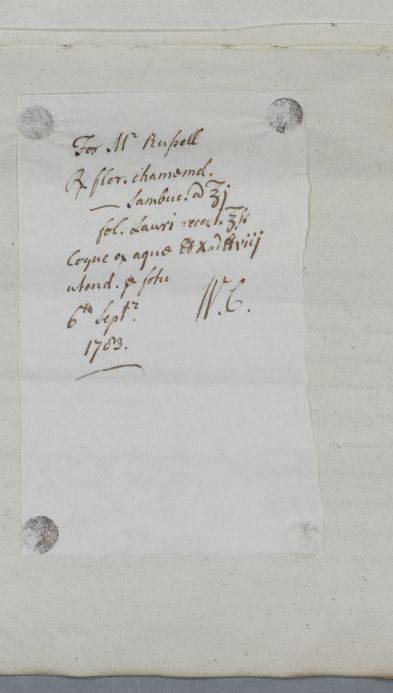 For Mr Russell
℞ flor. chamæmel.
— Sambuc. a ʒj
fol. Lauri recent. ʒss
Coque ex aquæ ℔x ad ℔viij
utend. p fotu
6th Septr. W.C.
1783.